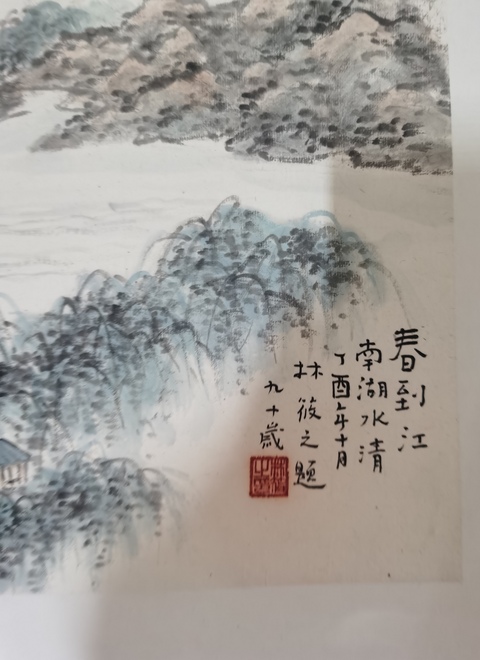 春到江
南湖水清
丁酉年十月
林筱之題
九十歲